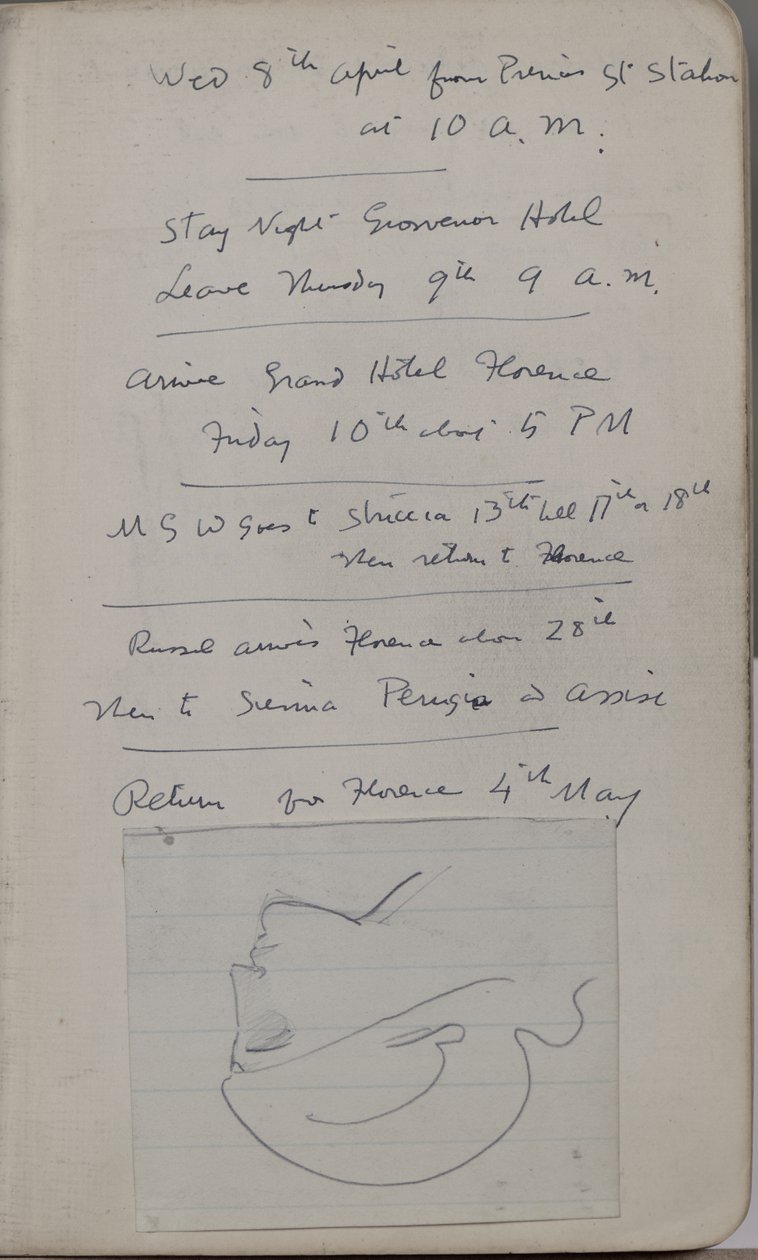 Wed 8th April from Princes St Station
at 10 a.m.
Stay Night Grosvenor Hotel
Leave Thursday 9th 9 a.m.
arrive Grand Hotel Florence
Friday 10th about 5 PM
M G W Goes to 13th till 17th or 18th
then return to Florence
Russel arrives Florence about 28th
then to Sienna Perugia & Assisi
Return for Florence 4th May